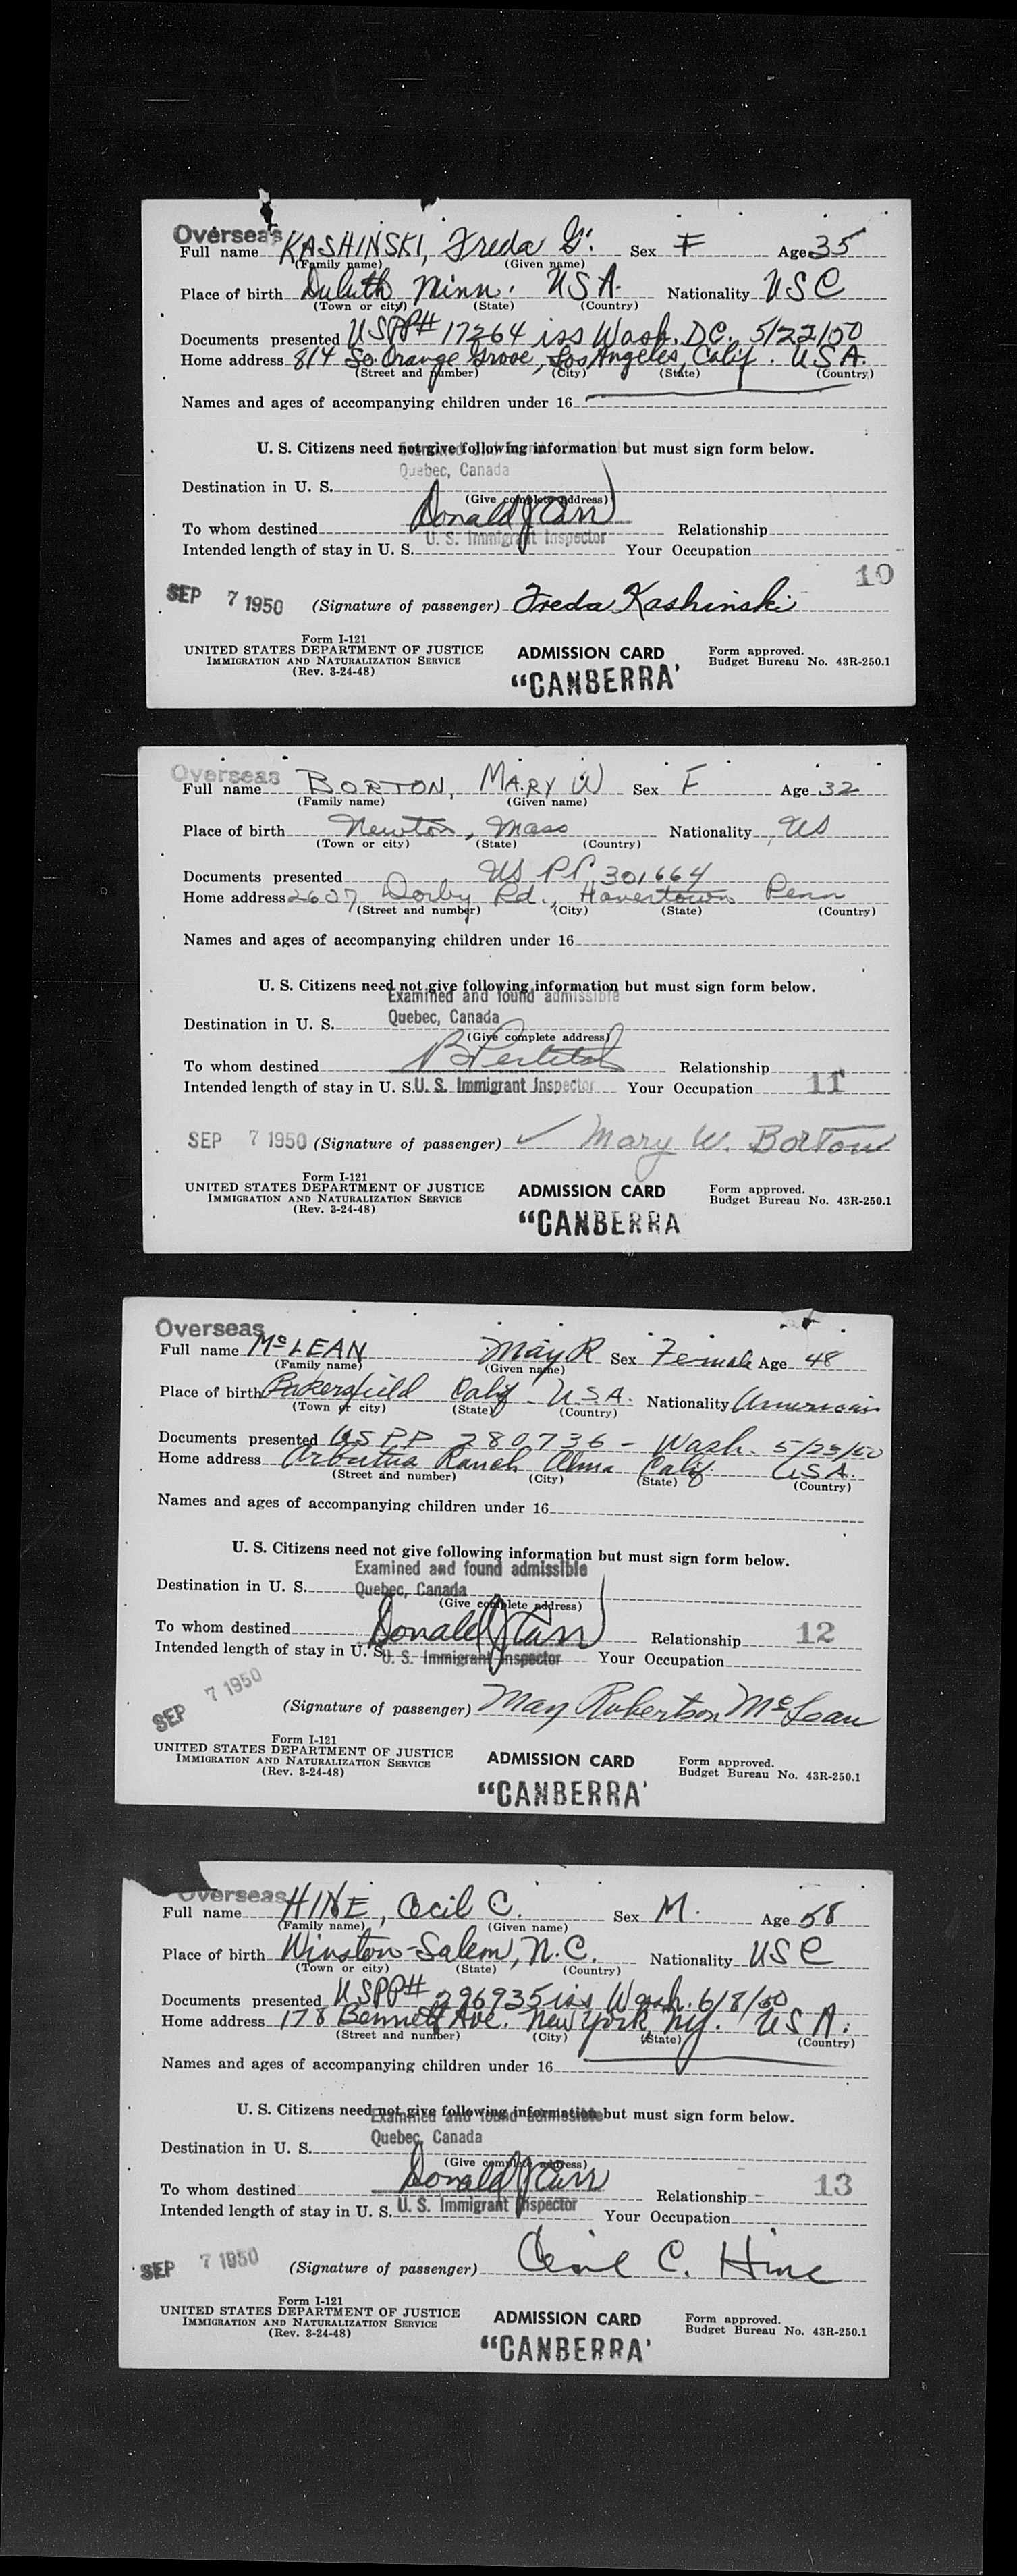 Overseas
Full name KASHINSKI, Freda G. Sex F Age 35
(Family name) (Given name)
Place of birth Duluth Minn. USA. Nationality USC
(Town or city) (State) (Country)
Documents presented USPP# 17264 iss Wash. DC. 5/22/50
Home address 814 So. Orange Grove, Los Angeles, Calif. USA.
(Street and number) (City) (State) (Country)
Names and ages of accompanying children under 16
U. S. Citizens need not give following information but must sign form below.
Quebec, Canada
Destination in U. S.
(Give complete address)
To whom destined Donald J Carr Relationship
U. S. Immigrant Inspector
Intended length of stay in U. S. Your Occupation
10
SEP 7 1950 (Signature of passenger) Freda Kashinski
Form I-121
UNITED STATES DEPARTMENT OF JUSTICE ADMISSION CARD Form approved.
IMMIGRATION AND NATURALIZATION SERVICE Budget Bureau No. 43R-250.1
(Rev. 3-24-48)
"CANBERRA'
Overseas
Full name BORTON, MARY W Sex F Age 32
(Family name) (Given name)
Place of birth Newton, Mass Nationality US
(Town or city) (State) (Country)
Documents presented US PP 301664
Home address 2607 Darby Rd., Havertown Penn
(Street and number) (City) (State) (Country)
Names and ages of accompanying children under 16
U. S. Citizens need not give following information but must sign form below.
Examined and found admissible
Quebec, Canada
Destination in U. S.
(Give complete address)
To whom destined Relationship
Intended length of stay in U. S. U. S. Immigrant Inspector Your Occupation 11
SEP 7 1950 (Signature of passenger) ✓ Mary W. Borton
Form I-121
UNITED STATES DEPARTMENT OF JUSTICE ADMISSION CARD Form approved.
IMMIGRATION AND NATURALIZATION SERVICE Budget Bureau No. 43R-250.1
(Rev. 3-24-48)
"CANBERRA
Overseas
Full name McLEAN May R Sex Female Age 48
(Family name) (Given name)
Place of birth Bakersfield Calif. U.S.A. Nationality American
(Town or city) (State) (Country)
Documents presented US PP 280736 - Wash. 5/23/50
Home address Arbutus Ranch Alma Calif USA.
(Street and number) (City) (State) (Country)
Names and ages of accompanying children under 16
U. S. Citizens need not give following information but must sign form below.
Examined and found admissible
Quebec, Canada
Destination in U. S.
(Give complete address)
To whom destined Donald J Carr Relationship 12
Intended length of stay in U. S. U. S. Immigrant Inspector Your Occupation
SEP 7 1950 (Signature of passenger) May Robertson McLean
Form I-121
UNITED STATES DEPARTMENT OF JUSTICE ADMISSION CARD Form approved.
IMMIGRATION AND NATURALIZATION SERVICE Budget Bureau No. 43R-250.1
(Rev. 3-24-48)
"CANBERRA'
Overseas
Full name HINE, Cecil C. Sex M. Age 58
(Family name) (Given name)
Place of birth Winston-Salem, N.C. Nationality USC
(Town or city) (State) (Country)
Documents presented USPP# 296935 iss Wash. 6/8/50
Home address 178 Bennett Ave. New York, N.Y. USA.
(Street and number) (City) (State) (Country)
Names and ages of accompanying children under 16
U. S. Citizens need not give following information but must sign form below.
Examined and found admissible
Quebec, Canada
Destination in U. S.
(Give complete address)
To whom destined Donald J Carr Relationship 13
Intended length of stay in U. S. U. S. Immigrant Inspector Your Occupation
SEP 7 1950 (Signature of passenger) Cecil C. Hine
Form I-121
UNITED STATES DEPARTMENT OF JUSTICE ADMISSION CARD Form approved.
IMMIGRATION AND NATURALIZATION SERVICE Budget Bureau No. 43R-250.1
(Rev. 3-24-48)
"CANBERRA'